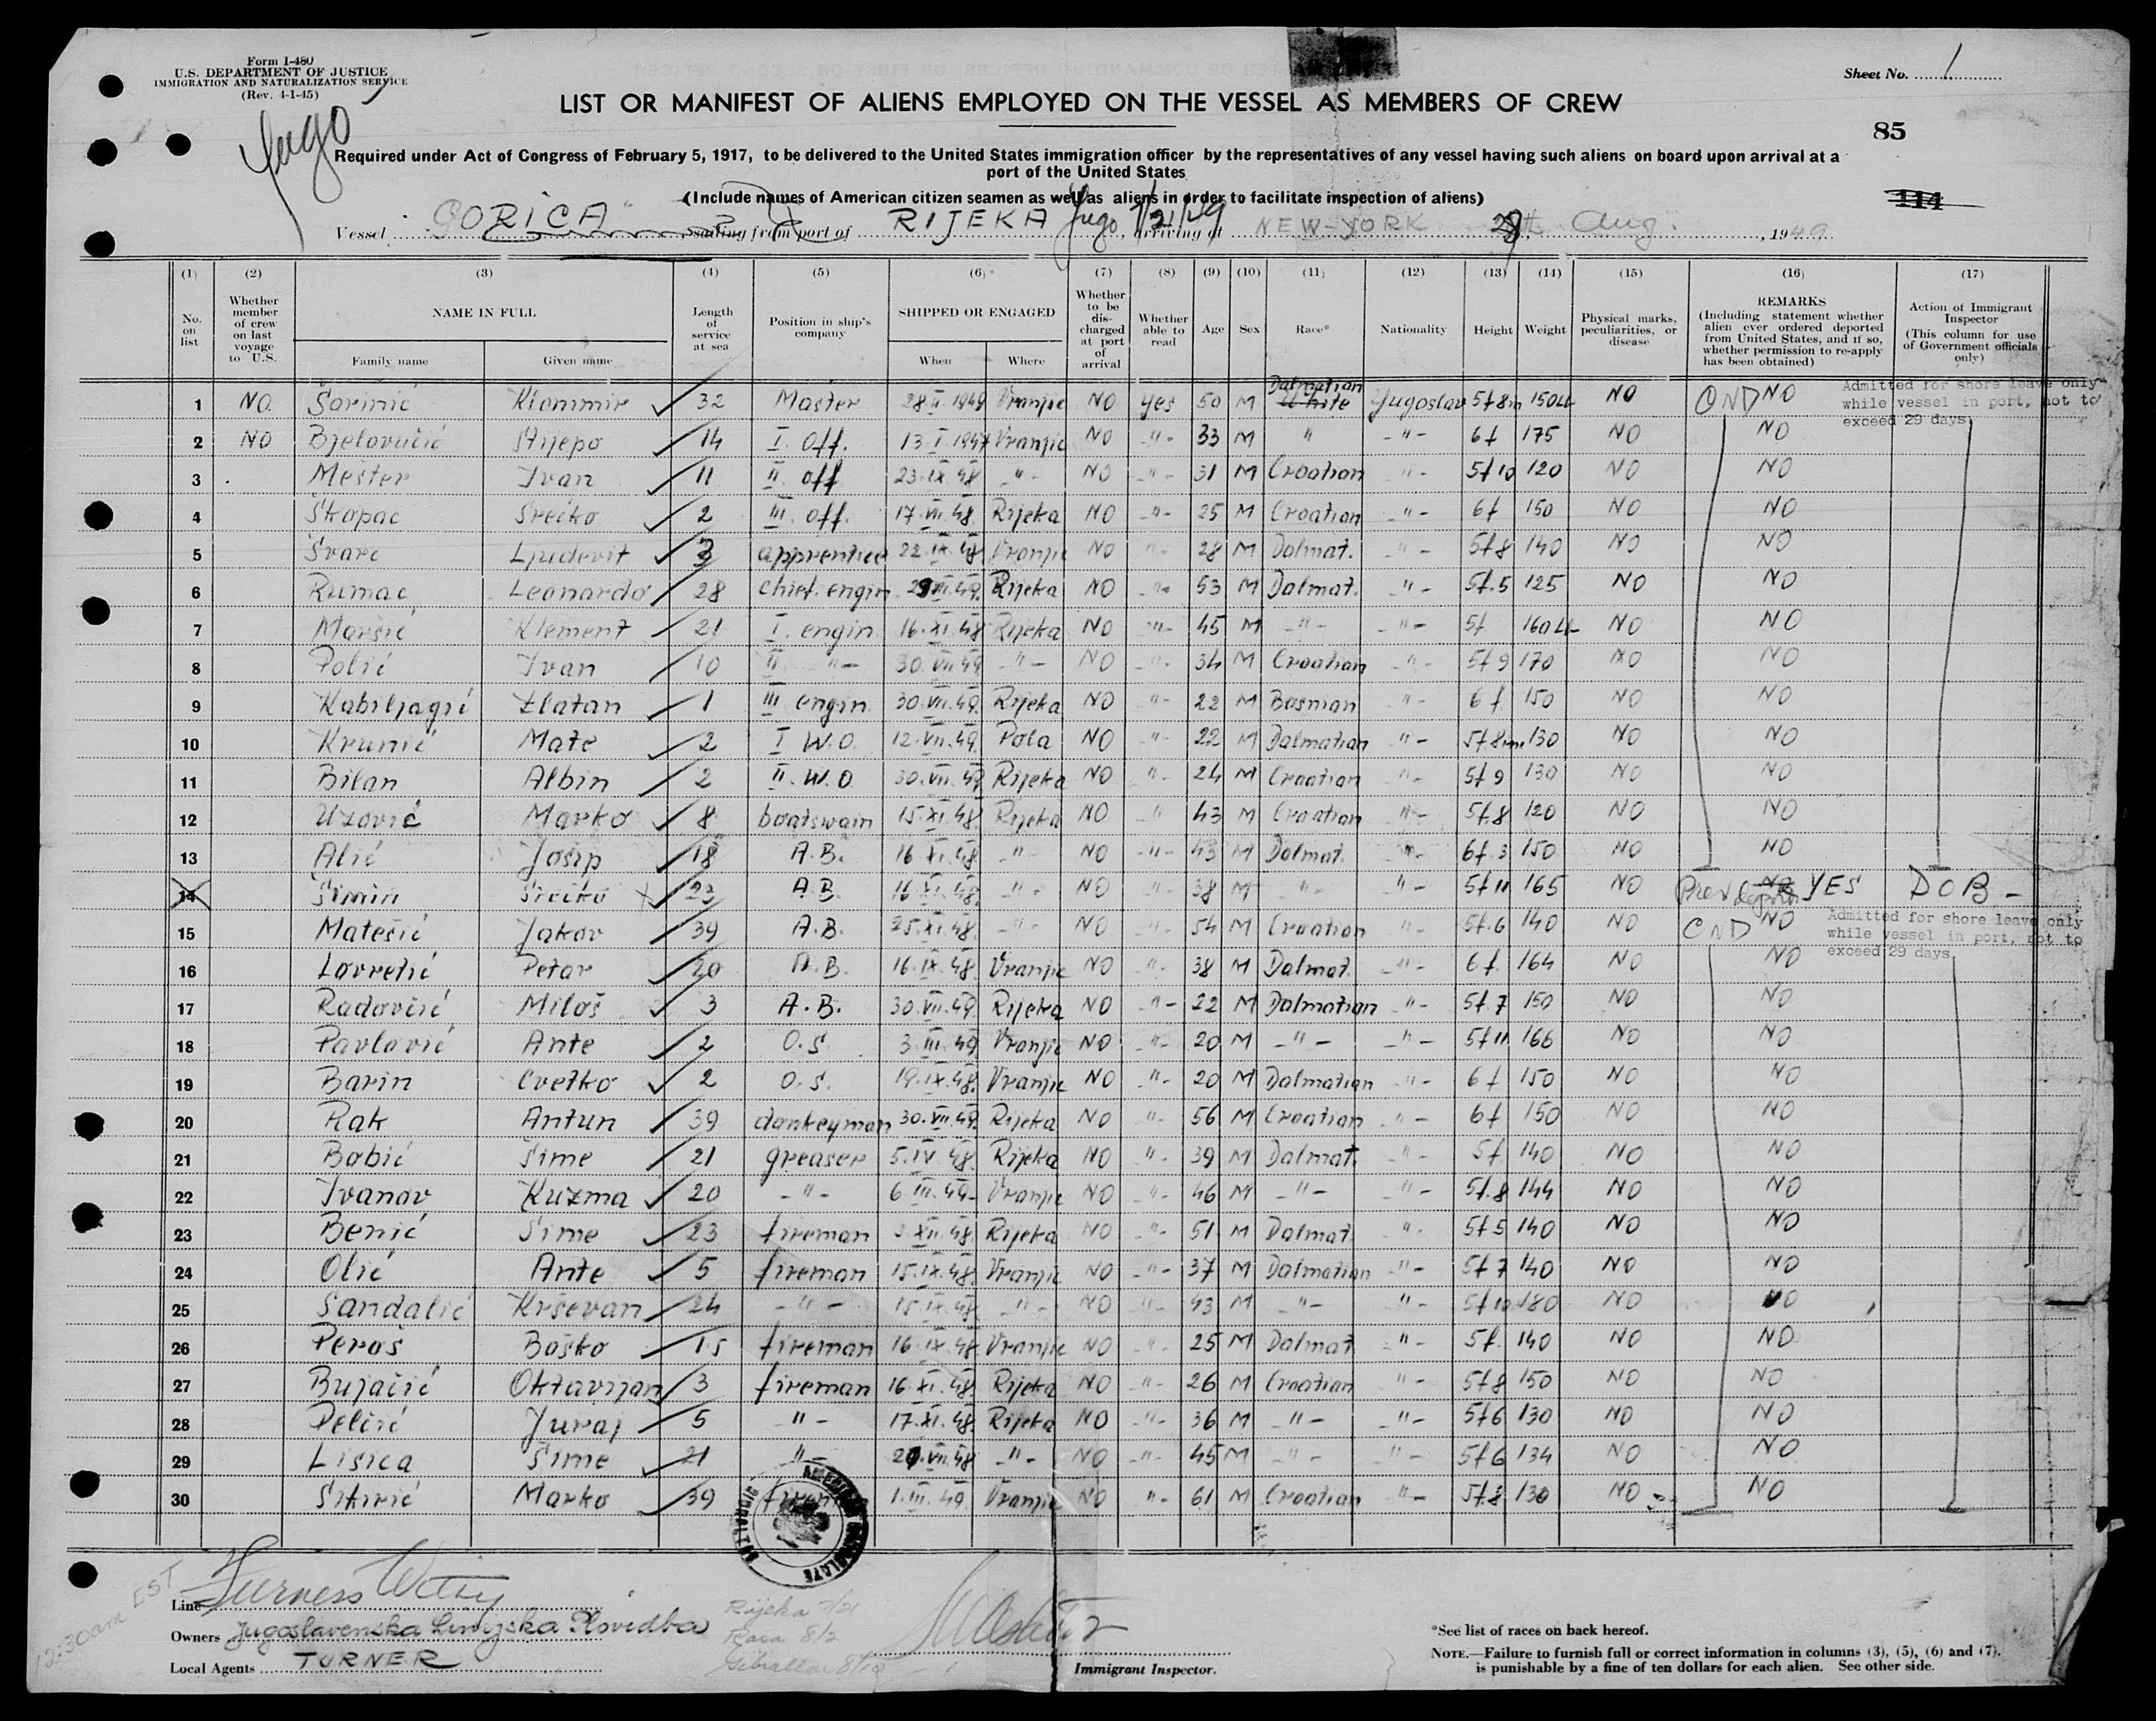 Form I-480
U.S. DEPARTMENT OF JUSTICE
IMMIGRATION AND NATURALIZATION SERVICE
(Rev. 4-1-45)
Sheet No. 1
Yugo
LIST OR MANIFEST OF ALIENS EMPLOYED ON THE VESSEL AS MEMBERS OF CREW
85
Required under Act of Congress of February 5, 1917, to be delivered to the United States immigration officer by the representatives of any vessel having such aliens on board upon arrival at a
port of the United States
(Include names of American citizen seamen as well as aliens in order to facilitate inspection of aliens)
114
Vessel "GORICA" sailing from port of RIJEKA Yugo 7/21/49, arriving at NEW-YORK 28th Aug., 1949
(1) (2) (3) (4) (5) (6) (7) (8) (9) (10) (11) (12) (13) (14) (15) (16) (17)
No. on list
Whether member of crew on last voyage to U.S.
NAME IN FULL
Family name
Given name
Length of service at sea
Position in ship's company
SHIPPED OR ENGAGED
When
Where
Whether to be discharged at port of arrival
Whether able to read
Age
Sex
Race*
Nationality
Height
Weight
Physical marks, peculiarities, or disease
REMARKS
(Including statement whether alien ever ordered deported from United States, and if so, whether permission to re-apply has been obtained)
Action of Immigrant Inspector
(This column for use of Government officials only)
1 NO Šarinić 32 Master 28 II 1949 Vranjic NO yes 50 M Dalmatian White Yugoslav 5f 8in 150lb NO OND NO Admitted for shore leave only while vessel in port, not to exceed 29 days
2 NO Bjelovučić Stijepo 14 I. Off. 13 I. 1947 Vranjic NO -"- 33 M " -"- 6f 175 NO NO
3 Mešter Ivan 11 II off 23.IX.48 -"- NO -"- 31 M Croatian "- 5f 10 120 NO NO
4 Škopac Srećko 2 III. off. 17.VII.48. Rijeka NO -"- 25 M Croatian "- 6f 150 NO NO
5 Švarc Ljudevit 3 apprentice 22.IX.48 Vranjic NO "- 28 M Dalmat. "- 5f 8 140 NO NO
6 Rumac Leonardo 28 chief. engin Rijeka NO -"- 53 M Dalmat. "- 5f.5 125 NO NO
7 Maršić Klement 21 I. engin 16.XI.48 Rijeka NO -"- 45 M -"- "- 5f 160lb NO NO
8 Polić Ivan 10 II -"- 30.VII.49 -"- NO "- 34 M Croatian "- 5f 9 170 NO NO
9 Kabiljagić Zlatan 1 III engin 30.VII.49. Rijeka NO " 22 M Bosnian "- 6f 150 NO NO
10 Krunić Mate 2 I W.O. 12.VII.49. Pola NO "- 22 M Dalmatian "- 5f 8in 130 NO NO
11 Bilan Albin 2 II. W.O 30.VII.49 Rijeka NO "- 24 M Croatian "- 5f 9 130 NO NO
12 Uzović Marko 8 boatswain 15.XI.48 Rijeka NO " 43 M Croatian "- 5f.8 120 NO NO
13 Alić Josip 18 A.B. 16 XI.48 -"- NO -"- 43 M Dalmat. "- 6f.3 150 NO NO
14 Šimin Srećko 23 A.B. 16 XI.48. -"- NO "- 38 M "- "- 5f 11 165 NO Prev deport NO YES DOB -
15 Matešić Jakov 39 A.B. 25.XI.48. -"- NO "- 54 M Croatian "- 5f.6 140 NO OND NO Admitted for shore leave only while vessel in port, not to exceed 29 days
16 Lovretić Petar 20 A.B. 16.IX.48 Vranjic NO "- 38 M Dalmat. -"- 6f. 164 NO NO
17 Radovčić Miloš 3 A.B. 30.VII.49. Rijeka NO "- 22 M Dalmatian "- 5f.7 150 NO NO
18 Pavlović Ante 2 O.S. 3.III.49 Vranjic NO "- 20 M -"- -"- 5f 11 166 NO NO
19 Barin Cvetko 2 O.S. 19.IX.48. Vranjic NO "- 20 M Dalmatian "- 6f 150 NO NO
20 Rak Antun 39 donkeyman 30.VII.49 Rijeka NO "- 56 M Croatian "- 6f 150 NO NO
21 Babić Šime 21 greaser 5.IV.48. Rijeka NO "- 39 M Dalmat. "- 5f. 140 NO NO
22 Ivanov Kuzma 20 -"- 6.III.49 Vranjic NO "- 46 M -"- "- 5f.8 144 NO NO
23 Benić Šime 23 fireman XII.48 Rijeka NO "- 51 M Dalmat. " 5f 5 140 NO NO
24 Olić Ante 5 fireman 15.IX.48. Vranjic NO "- 37 M Dalmatian "- 5f 7 140 NO NO
25 Sandalić Krševan 24 -"- 15.IX.48 -"- NO "- 43 M -"- "- 5f 10 180 NO NO
26 Peroš Boško 15 fireman 16.IX.48 Vranjic NO "- 25 M Dalmat "- 5f. 140 NO NO
27 Bujačić Oktavijan 3 fireman 16.XI.48 Rijeka NO "- 26 M Croatian "- 5f8 150 NO NO
28 Pelčić Juraj 5 -"- 17.XI.48. Rijeka NO "- 36 M -"- "- 5f6 130 NO NO
29 Lisica Šime 21 "- -"- NO "- 45 M "- "- 5f6 134 NO NO
30 Marko 39 firem 1.III.49. Vranjic NO "- 61 M Croatian "- 5f.8 130 NO NO
AMERICAN CONSULATE GIBRALTAR
12:30am EST
Line Furness Withy
Owners Jugoslavenska Linijska Plovidba
Local Agents TURNER
Rijeka 7/21
Rasa 8/2
Gibraltar 8/10
Immigrant Inspector.
*See list of races on back hereof.
NOTE.—Failure to furnish full or correct information in columns (3), (5), (6) and (7).
is punishable by a fine of ten dollars for each alien. See other side.